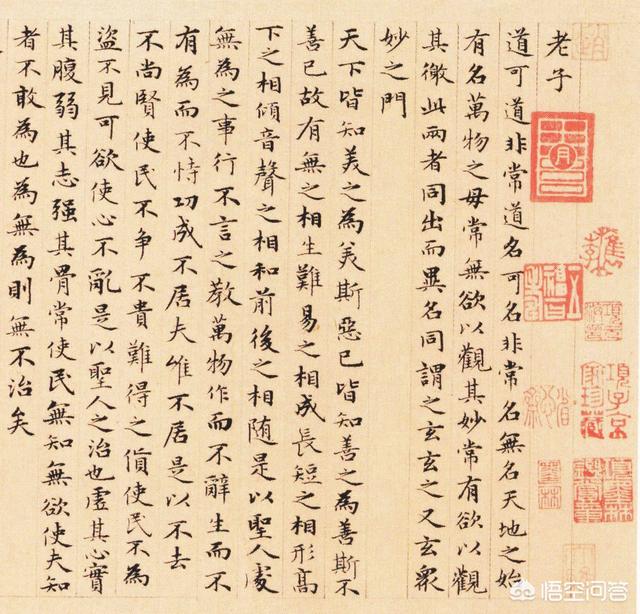 老子
道可道非常道名可名非常名無名天地之始
有名萬物之母常無欲以觀其妙常有欲以觀
其徼此兩者同出而異名同謂之玄玄之又玄眾
妙之門
天下皆知美之為美斯惡已皆知善之為善斯不
善已故有無之相生難易之相成長短之相形高
下之相傾音聲之相和前後之相随是以聖人處
無為之事行不言之教萬物作而不辭生而不
有為而不恃功成不居夫唯不居是以不去
不尚賢使民不争不貴難得之貨使民不為
盜不見可欲使心不亂是以聖人之治也虛其心實
其腹弱其志强其骨常使民無知無欲使夫知
者不敢為也為無為則無不治矣
項子京家珍藏
悟空问答